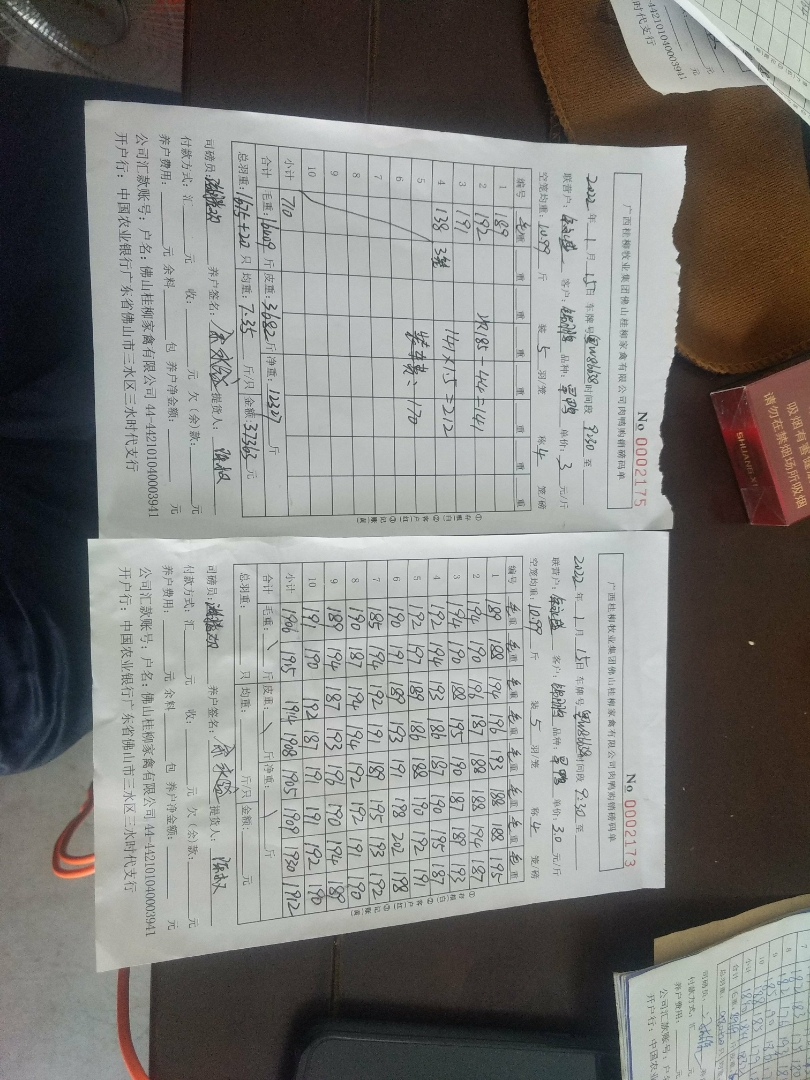 广西桂柳牧业集团佛山桂柳家禽有限公司肉鸭购销磅码单
No 0002175
2022年 1月 15日 车牌号 时间段 9:30 至
联营户: 客户: 品种: 草鸭 单价: 3 元/斤
空笼均重: 10.99 斤 装 5 羽/笼 称 4 笼/磅
编号 毛重 重 重 重 重 重 重 重
1 189
2 192 185-44=141
3 191 141×1.5=212
4 138 3笼
5 装车费: 170
6
7
8
9
10
小计 710
合计 毛重: 16009 斤 皮重: 3682 斤 净重: 12327 斤
总羽重: 1675+20 只 均重: 7.35 斤/只 金额: 37363 元
司磅员: 养户签名: 提货人:
付款方式: 汇 元 收: 元 欠(余)款: 元
养户费用: 元 余料 包 养户净金额: 元
公司汇款账号: 户名: 佛山桂柳家禽有限公司 44-442101040003941
开户行: 中国农业银行广东省佛山市三水区三水时代支行
①存根(白) ②客户(红) ③记账(黄)
广西桂柳牧业集团佛山桂柳家禽有限公司肉鸭购销磅码单
No 0002173
2022年 1月 15日 车牌号 时间段 9:30 至
联营户: 客户: 品种: 草鸭 单价: 3.0 元/斤
空笼均重: 10.99 斤 装 5 羽/笼 称 4 笼/磅
编号 毛重 毛重 毛重 毛重 毛重 毛重 毛重 毛重
1 189 188 194 196 193 188 188 195
2 194 190 196 187 188 188 194 187
3 194 190 188 195 190 187 189 193
4 192 194 193 186 187 190 195 187
5 172 197 189 186 188 190 192 191
6 190 191 189 193 191 198 202 198
7 185 194 192 191 189 195 193 192
8 190 187 194 194 192 192 191 190
9 189 194 187 193 196 190 194 189
10 191 190 192 187 191 191 192 190
小计 1906 1915 1914 1908 1905 1909 1930 1912
合计 毛重: 斤 皮重: 斤 净重: 斤
总羽重: 只 均重: 斤/只 金额: 元
司磅员: 养户签名: 提货人:
付款方式: 汇 元 收: 元 欠(余)款: 元
养户费用: 元 余料 包 养户净金额: 元
公司汇款账号: 户名: 佛山桂柳家禽有限公司 44-442101040003941
开户行: 中国农业银行广东省佛山市三水区三水时代支行
①存根(白) ②客户(红) ③记账(黄)
442101040003941
时代支行
请勿在禁烟场所吸烟
SHUANG XI